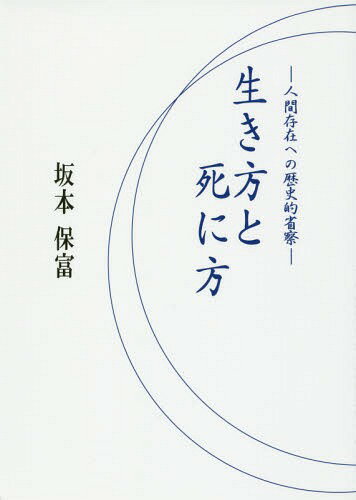 ―人間存在への歴史的省察―
生き方と
死に方
坂本 保富